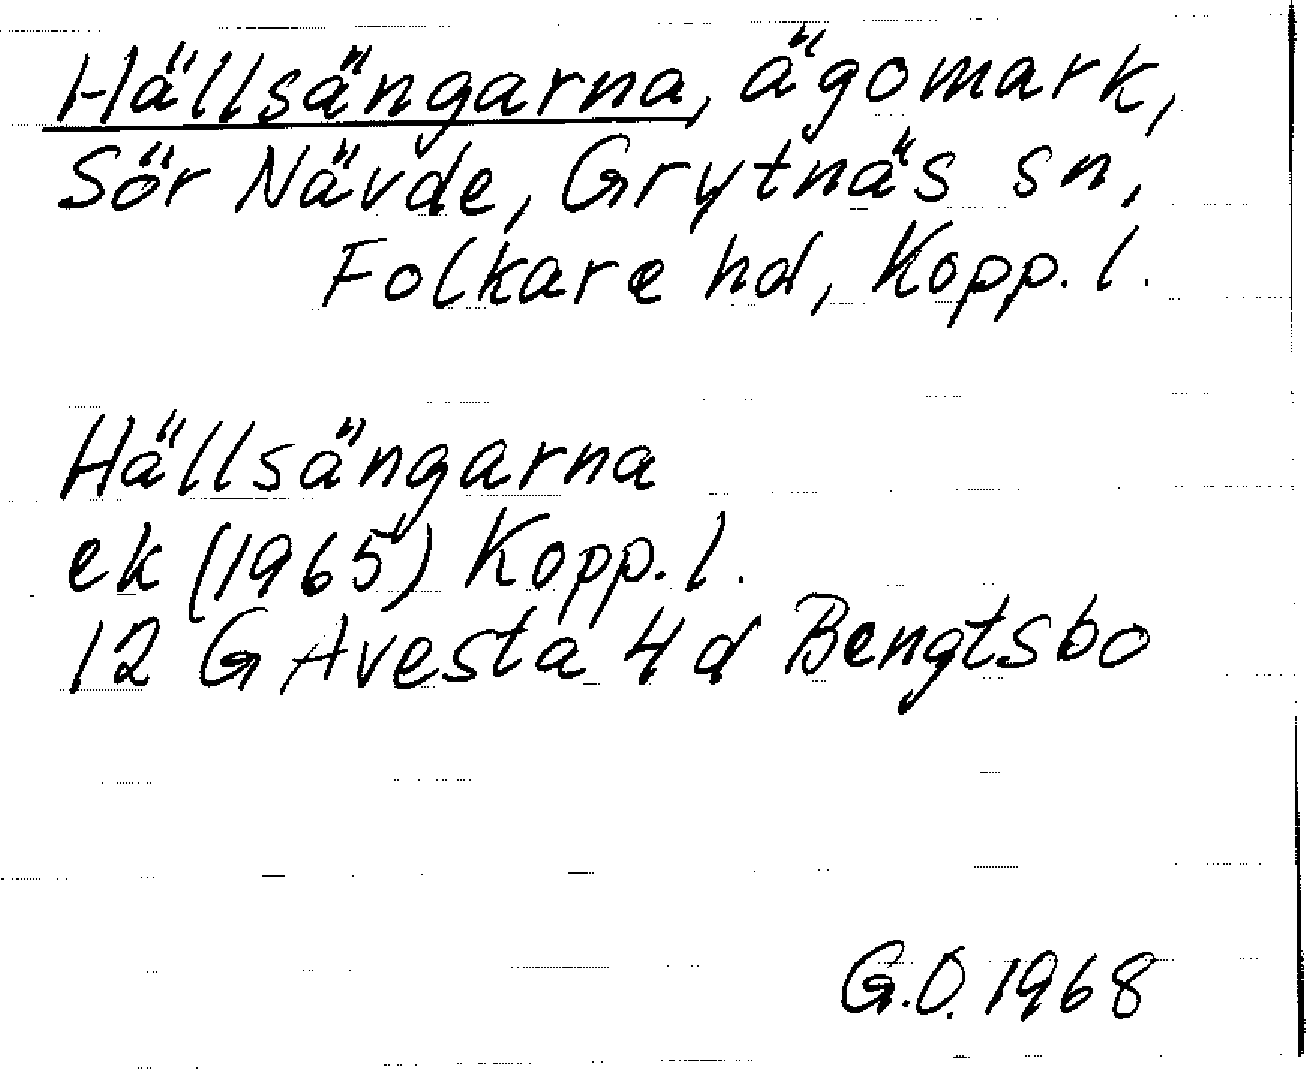 Hällsängarna, ägomark,
Sör Nävde, Grytnäs sn,
Folkare hd, Kopp. l.
Hällsängarna
ek (1965) Kopp. l.
12 G Avesta 4 d Bengtsbo
G.O. 1968